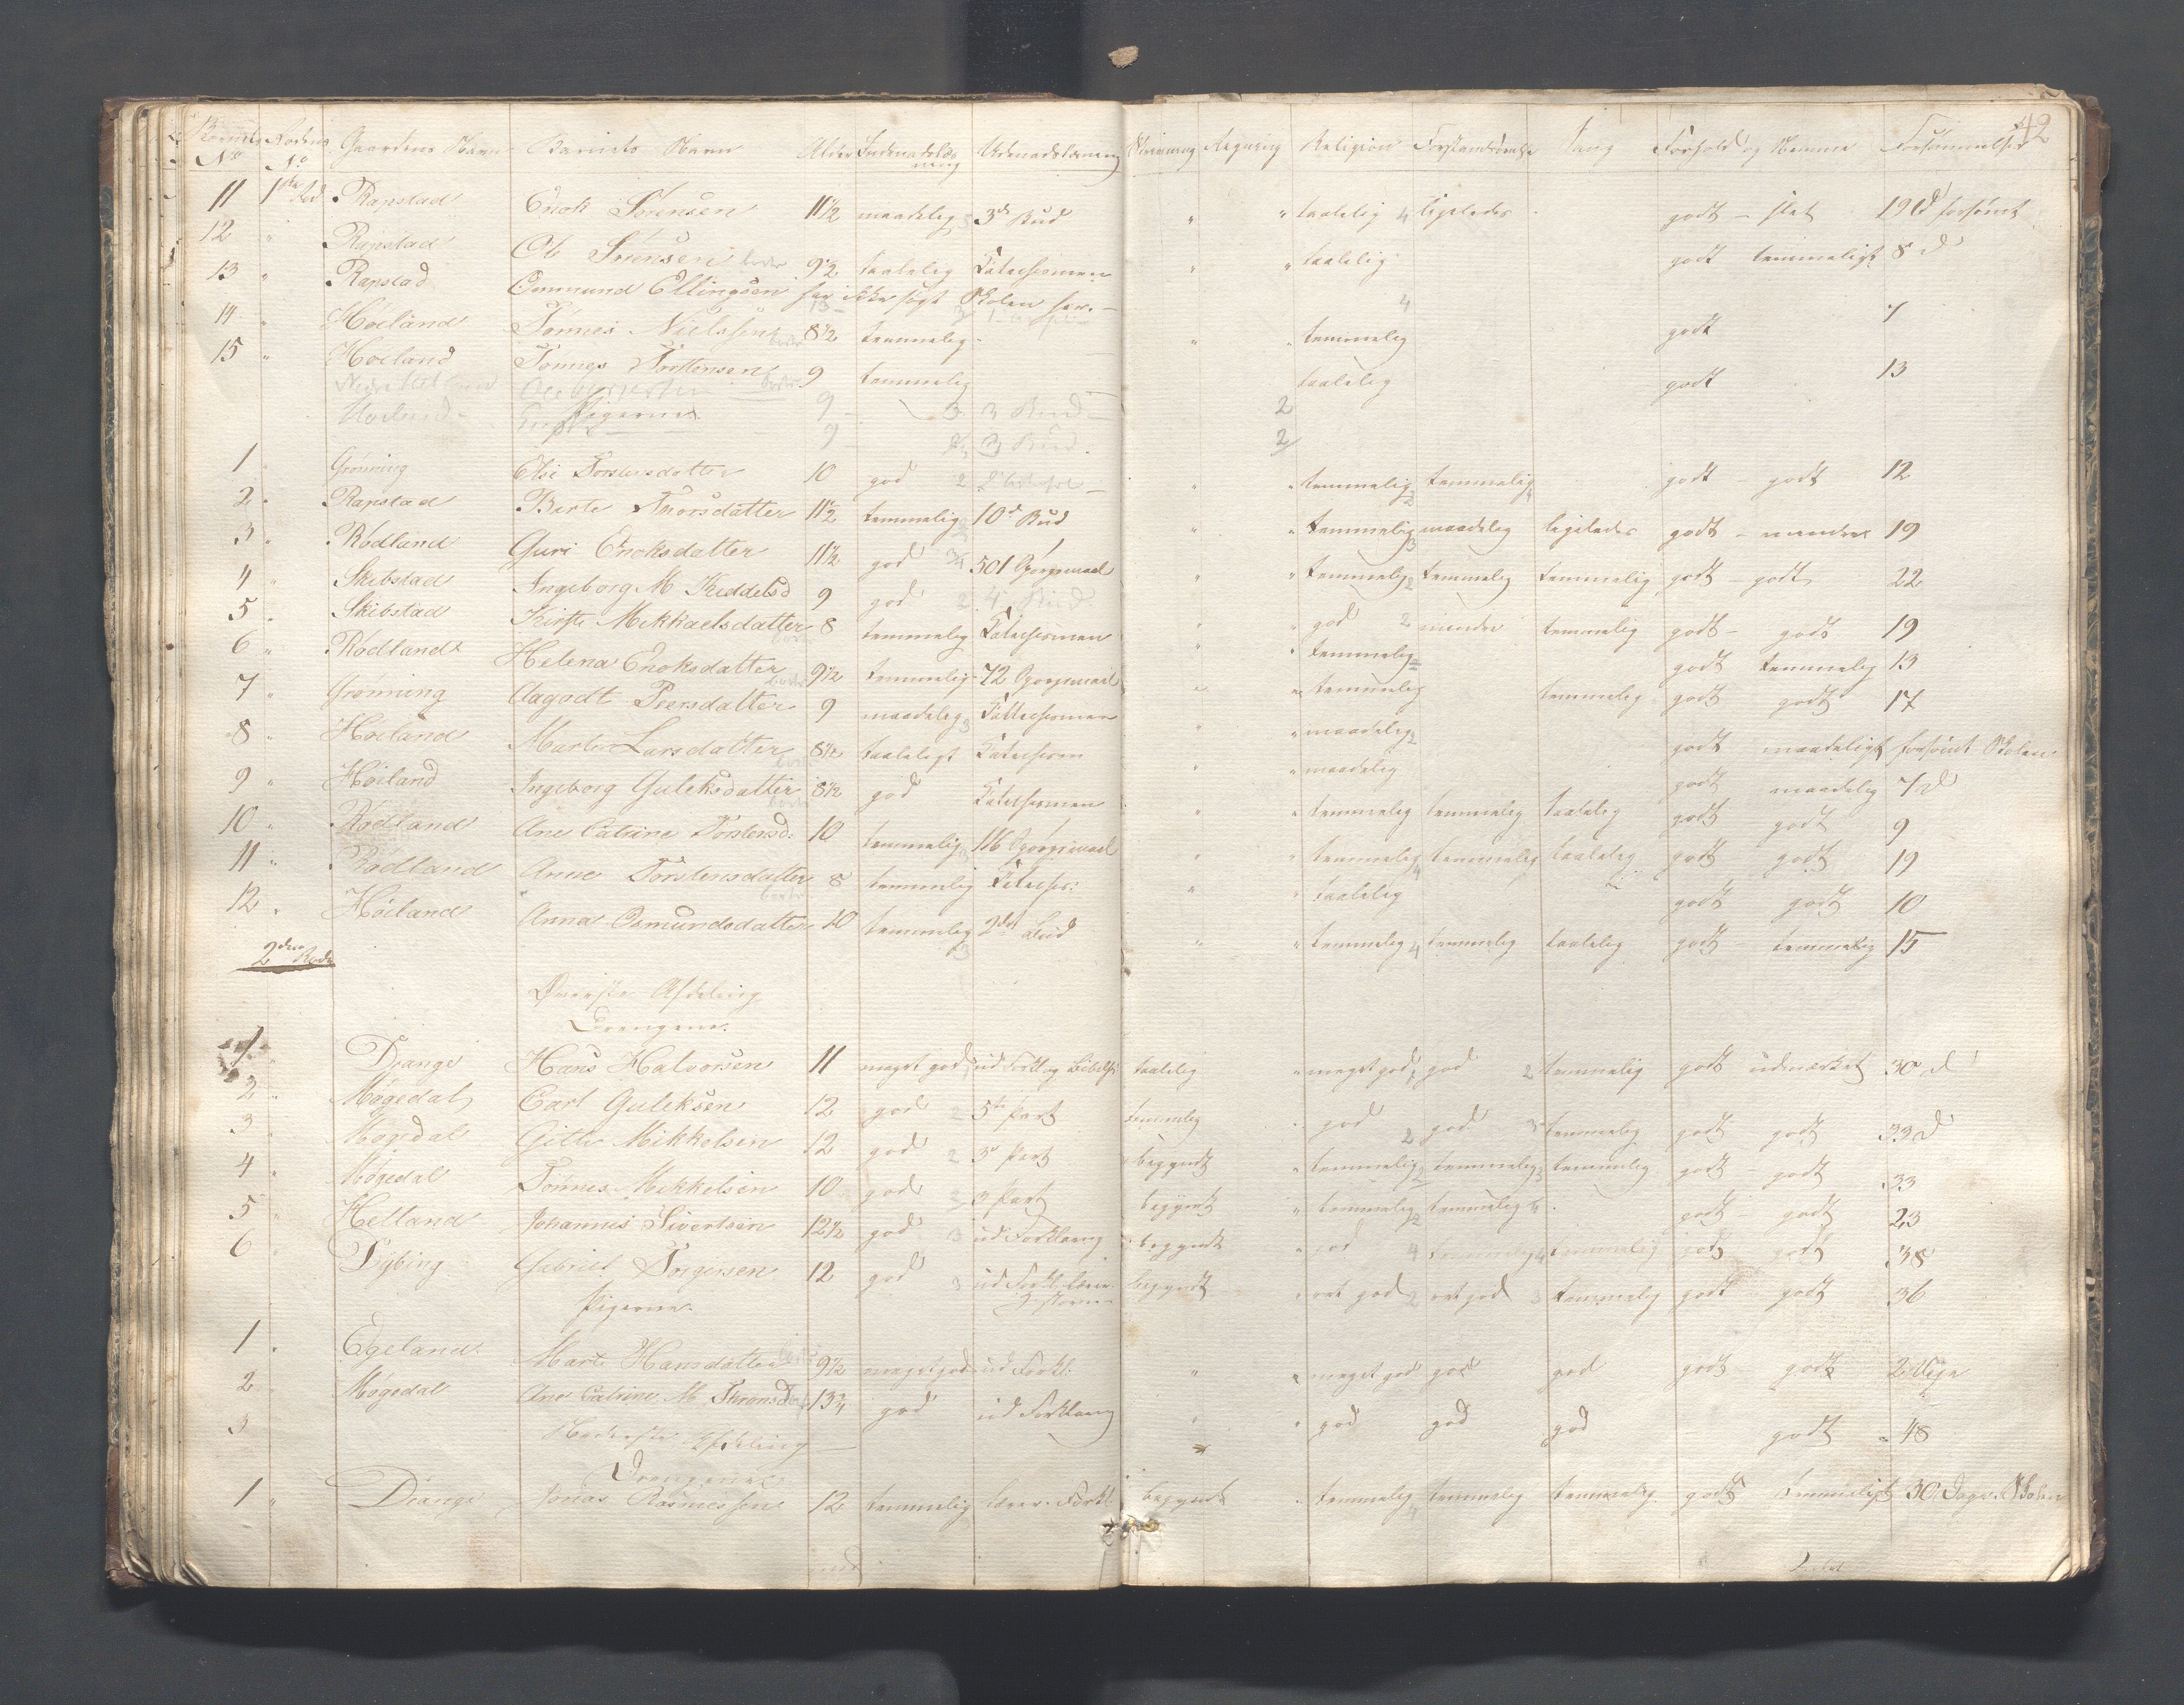 42
Barnets No Rodens No Gaardens Navn Barnets Navn Alder Indenadslæsning Udenadslæsning Skrivning Regning Religion Forstandsøvelse Sang Forhold og Nemme Forsømmelser
11 1ste Rod Rapstad Enok Sørensen 11½ maadelig 3de Bud " " taalelig 4 ligeledes godt - slet 19 d forsømt
12 " Rapstad Ole Sørensen 9½ taalelig Katechismen " " taalelig godt temmeligt 8 d
13 " Rapstad Ommund Ellingsen har ikke søgt Skolen her. 4
14 " Høiland Tønnes Nielssen 8½ temmelig " " temmelig godt 7
15 " Høiland Tønnes Torstensen 9 temmelig taalelig godt 13
9 3 3 Bud 2
Høiland Pigerne 9 3 Bud 2
1 " Grønning Else Torstensdatter 10 god 2 " " temmelig temmelig godt godt 12
2 " Rapstad Berte Thorsdatter 11½ temmelig 10d Bud " " temmelig maadelig ligeledes godt - mindre 19
3 " Rødland Guri Enoksdatter 11½ god 501 Spørgsmaal " " temmelig 2 temmelig temmelig godt - godt 22
4 " Skibstad Ingeborg M. Keddelsd 9 god 2 4 Bud " " god 2 mindre temmelig godt - godt 19
5 " Skibstad Kirste Mikkaelsdatter 8 temmelig Katechismen " " temmelig godt temmelig 13
6 " Rødland Helena Enoksdatter 9½ temmelig 72 Spørgsmaal " " temmelig temmelig godt godt 17
7 " Grønning Aagodt Peersdatter 9 maadelig 3 Kattechismen " " maadelig 2 godt maadeligt forsømt Skolen
8 " Høiland Marte Larsdatter 8½ taaleligt Katechism " " maadelig godt maadelig 7 d
9 " Høiland Ingeborg Guleksdatter 8½ god Katechismen " " temmelig temmelig taalelig godt godt 9
10 " Rødland Ane Catrine Torstensd: 10 temmelig 116 Spørgsmaal " " temmelig 4 temmelig taalelig godt godt 19
11 " Rødland Anne Torstensdatter 8 temmelig Katechis: " " taalelig godt godt 10
12 " Høiland Anna Osmundsdatter 10 temmelig 3 2det Bud " " temmelig 4 temmelig taalelig godt temmelig 15
2den Rode
Øverste Afdeling
Drengene.
1 " Drange Hans Halvorsen 11 meget god ud Forkl og Bibelh: taalelig " meget god god 2 temmelig godt udmærket 30 d
2 " Møgedal Carl Guleksen 12 god 2 5te Part temmelig " god 2 god 3 temmelig godt godt 33 d
3 " Møgedal Gitle Mikkelsen 12 god 2 3 Part begyndt " temmelig 2 temmelig 3 temmelig godt - godt 33
4 " Møgedal Tønnes Mikkelsen 10 god 3 3 Part begyndt " temmelig 2 temmelig godt - godt 23
5 " Helland Johannes Sivertsen 12½ god 3 ud Forklaring begyndt " god 4 temmelig 4 temmelig godt godt 38
6 " Dybing Gabriel Torgersen 12 god 3 ud Forkl. begyndt " ret god 2 ret god 3 temmelig godt godt 36
Pigerne.
1 " Egeland Marte Hansdatter 9½ meget god ud Forkl: " " meget god god god godt godt 2 Uger
2 " Møgedal Ane Catrine M. Thronsd 13¾ god ud Forklaring " " god god god godt " 48
3 Nederste Afdeling
Drengene
1 " Drange Jonas Rasmussen 12 temmelig lærer Forkl: begyndt " temmelig temmelig temmelig godt temmeligt 30 Dage Skolen